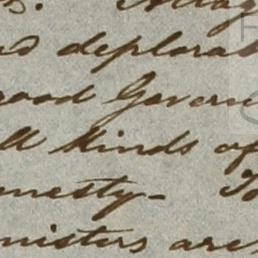 and deplorab
good Govern
ll kinds of
nesty- To
nisters are